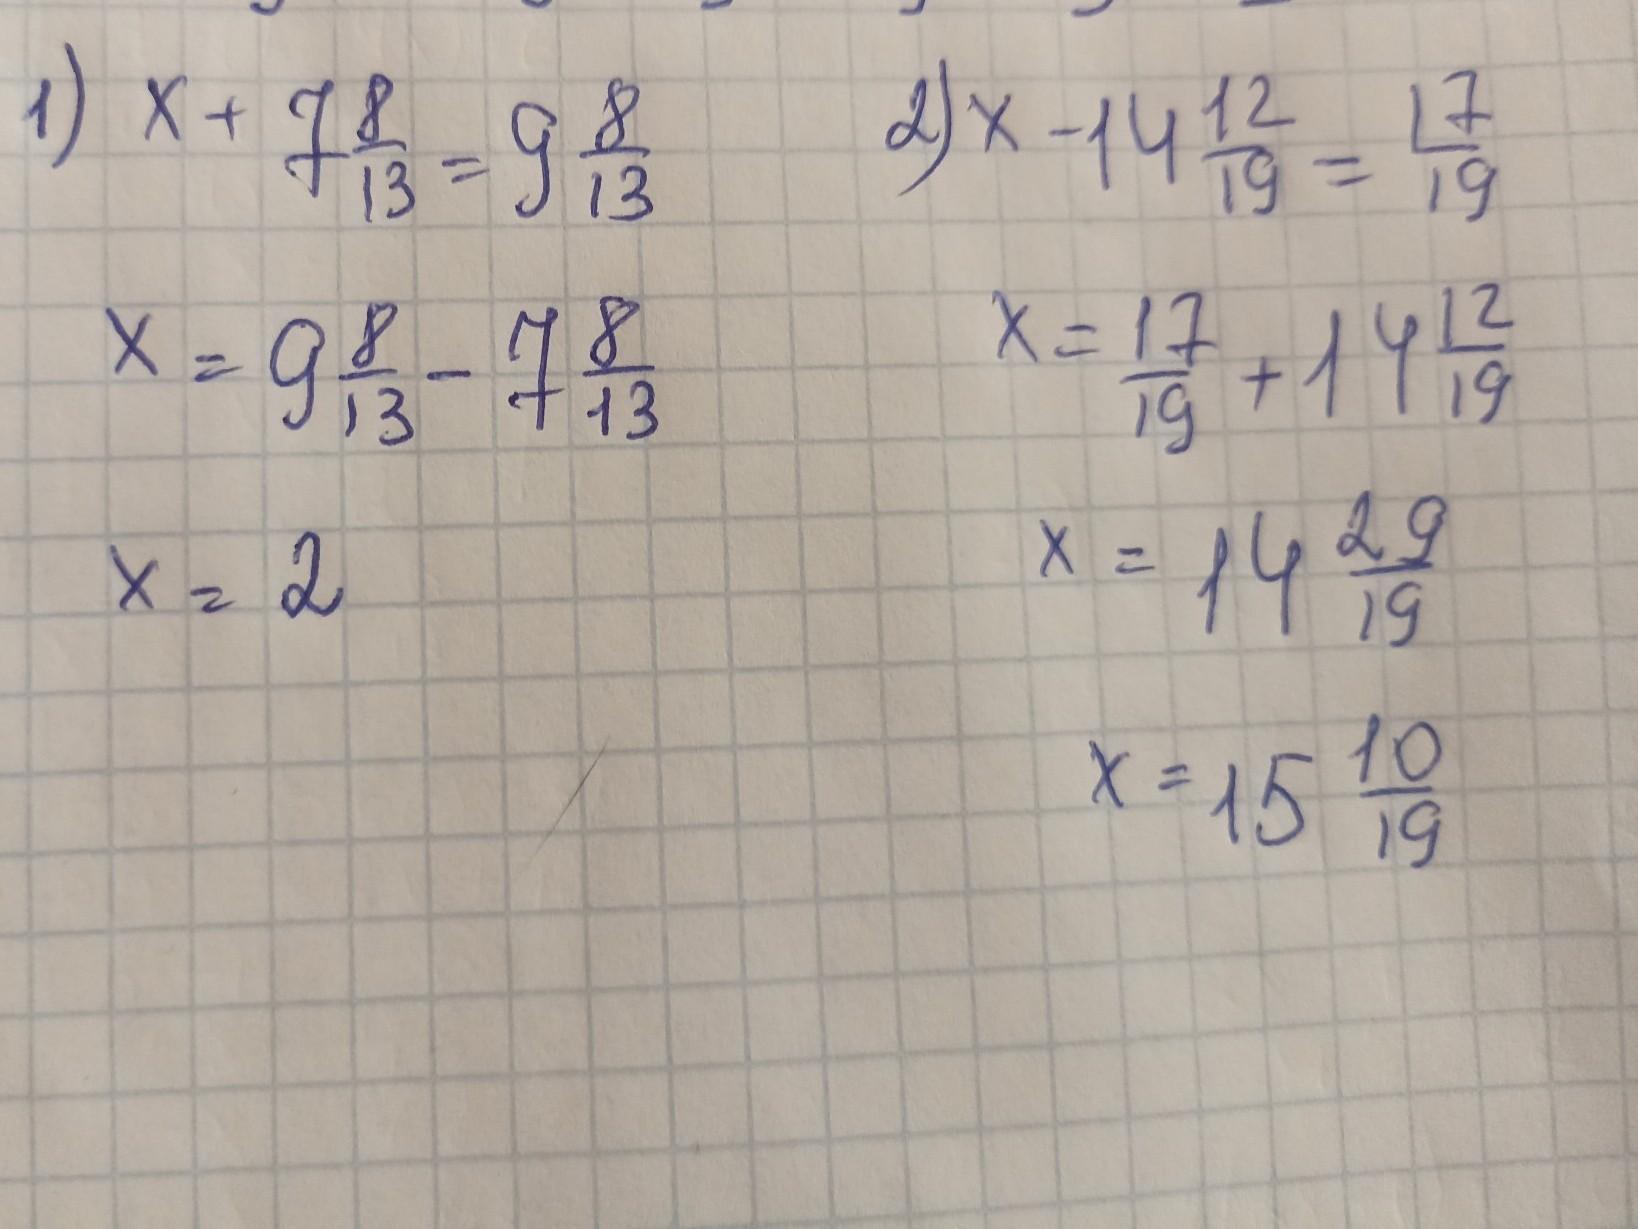 1) x + 7 8/13 = 9 8/13
x = 9 8/13 - 7 8/13
x = 2
2) x - 14 12/19 = 17/19
x = 17/19 + 14 12/19
x = 14 29/19
x = 15 10/19